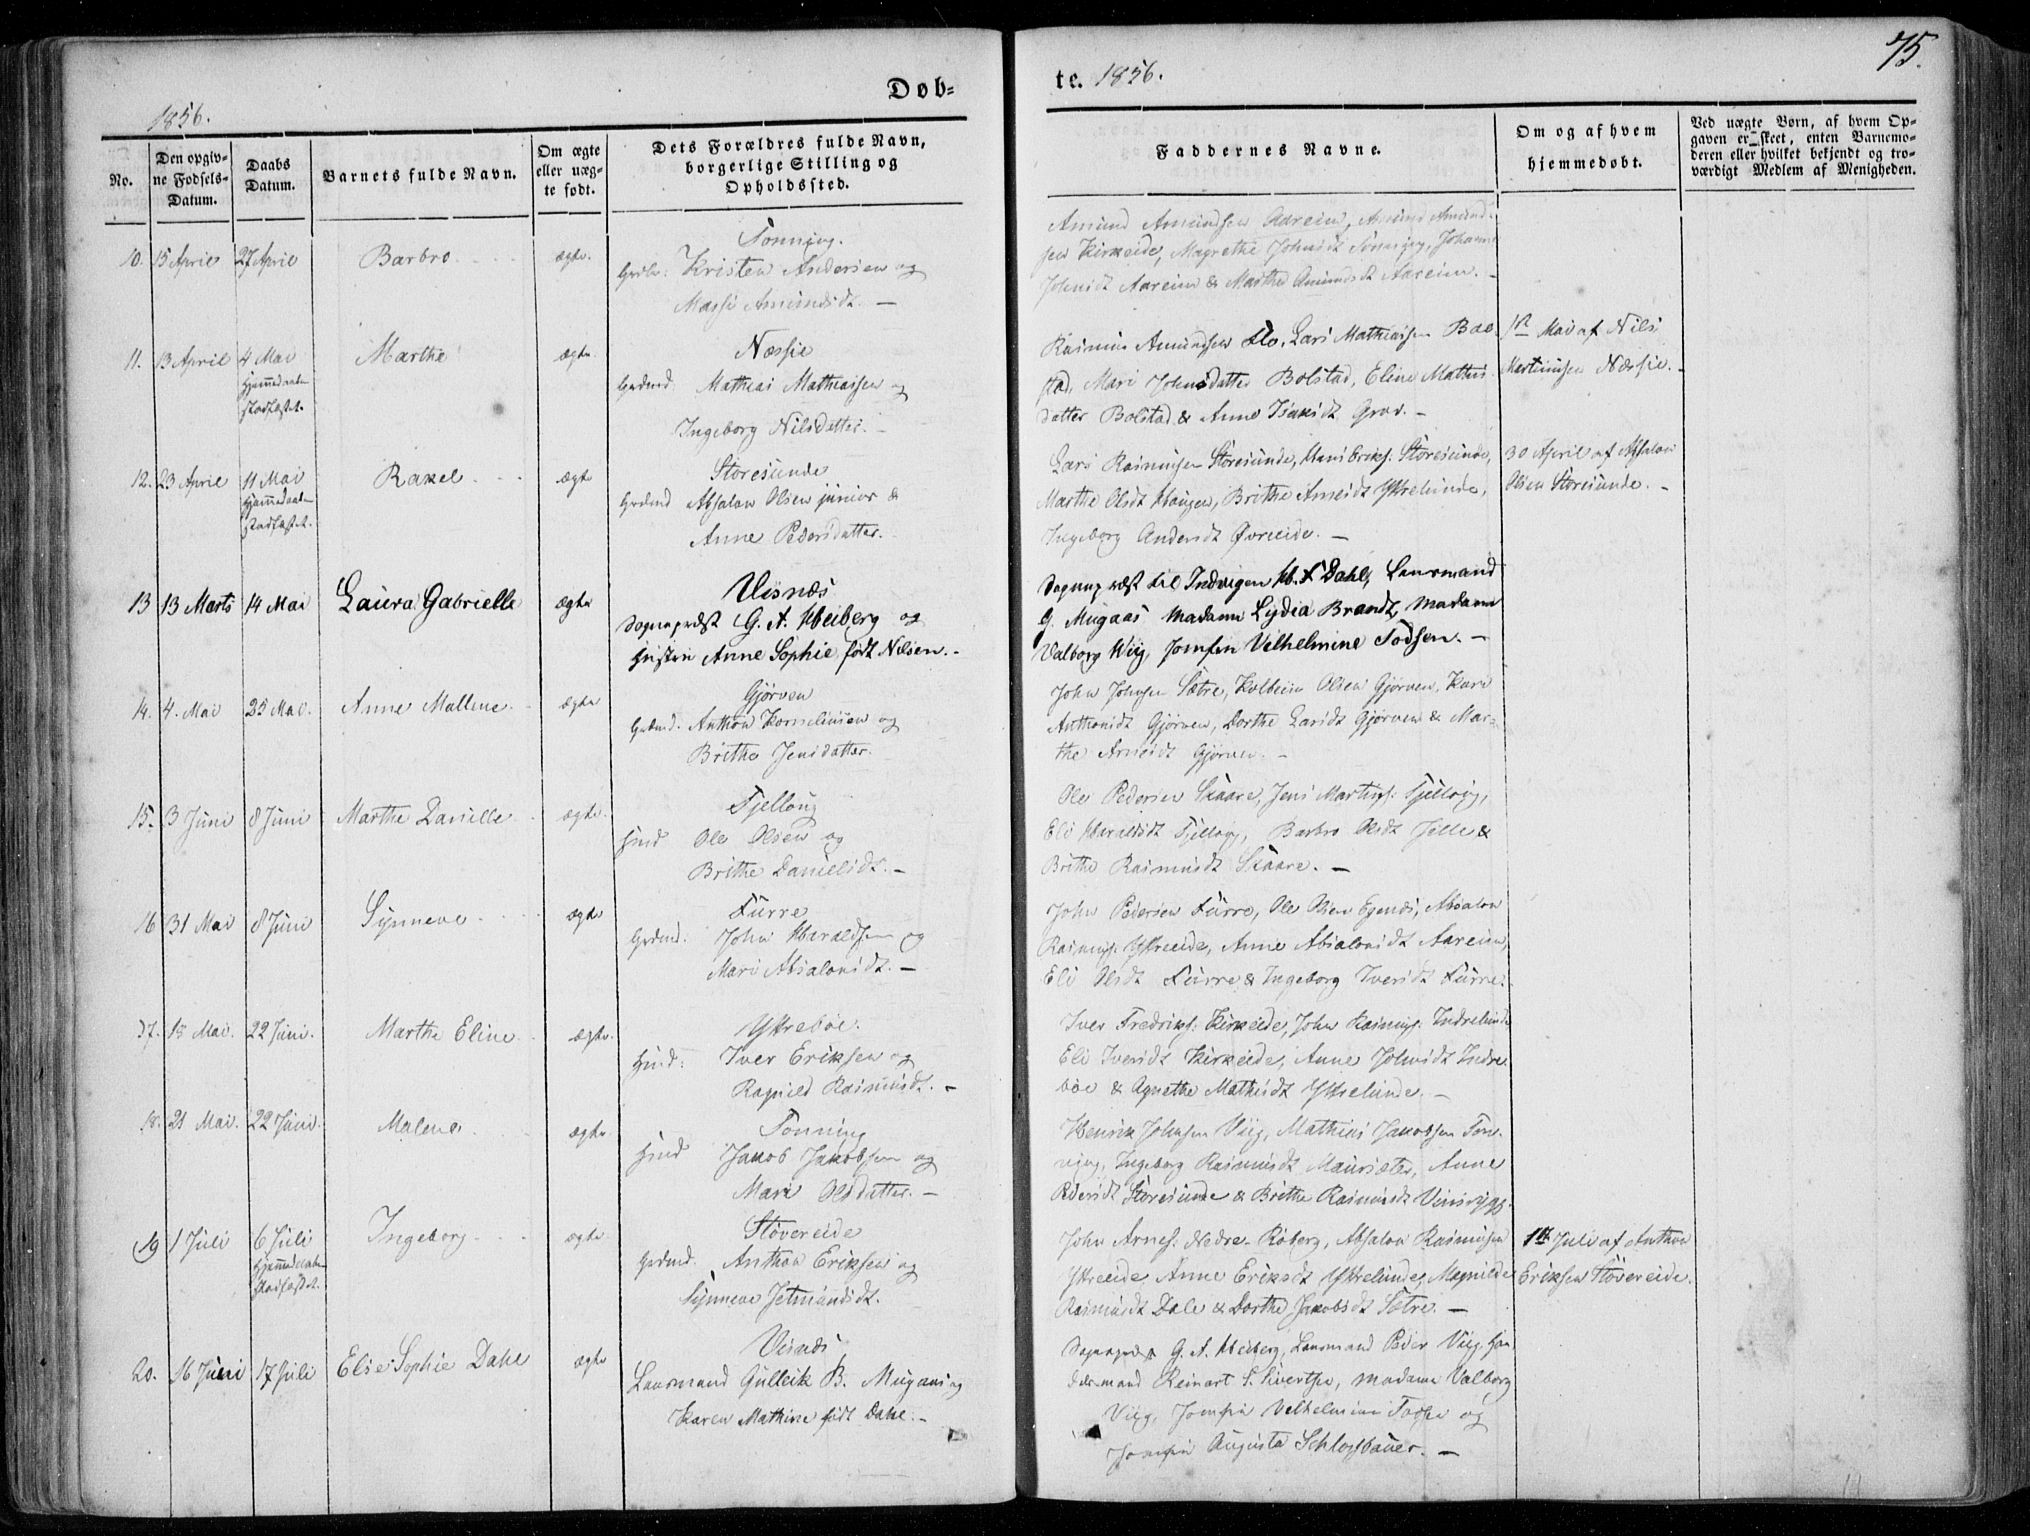 75.
Døb=
te. 1856.
1856.
No.
Den opgiv-
ne Fødsels-
Datum.
Daabs
Datum.
Barnets fulde Navn.
Om ægte
eller uæg-
te født.
Dets Forældres fulde Navn,
borgerlige Stilling og
Opholdssted.
Faddernes Navne.
Om og af hvem
hjemmedøbt.
Ved uægte Børn, af hvem Op-
gaven er skeet, enten Barnemo-
deren eller hvilket bekjendt og tro-
værdigt Medlem af Menigheden.
10. 15 April 27 April Barbro ægte.
Tonning.
Kristen Andersen og
Massi Amundsdt. —
Amund Amundsen Aareim, Amund Amund-
sen Kirkeide, Magrethe Johnsdt Tonning, Johanne
Johnsdt Aareim & Marthe Amundsdt Aareim. —
11. 13 April 4 Mai Marthe ægte
Hjemmedaaben
stadfæstet.
Næssie
Grdmd. Mathias Mathiassen og
Ingeborg Nilsdatter. —
Rasmus Amundsen Flo, Lars Mathiassen Bol-
stad, Mari Johnsdatter Bolstad, Eline Mathis-
datter Bolstad & Anne Isaksdt Grov. —
1ste Mai af Nils
Martinusen Næssie. —
12. 23 April 11 Mai Rakel ægte
Hjemmedaaben
stadfæstet.
Storesunde
Grdmd Absalon Olsen junior &
Anne Pedersdatter.
Lars Rasmusen Storesunde, Hans Eriks. Storesunde,
Marthe Olsdt Haugen, Brithe Arnesdt Ytrelunde,
Ingeborg Andersdt Øvreeide. —
30 April af Absalon
Olsen Storesunde. —
13 13 Marts 14 Mai Laura Gabrielle ægte
Visnæs
Sognepræst G. A. Heiberg og
Hustru Anne Sophie født Nilsen. -
Sognepræst til Indvigen H. F Dahl, Lensmand
G. Mugaas Madame Lydia Brandt, Madame
Valborg Wiig, Jomfru Vilhelmine Todsen. —
14. 4. Mai 25 Mai. Anne Mallene ægte
Gjørven
Grdmd. Anthon Kornelinsen og
Brithe Jensdatter.
John Johnsen Sætre, Kolbein Olsen Gjørven, Kari
Anthonsdt Gjørven, Dorthe Larsdt Gjørven & Mar-
the Arnesdt Gjørven. —
15. 3 Juni 8 Juni Marthe Danielle ægte.
Fjelloug
Hmd Ole Olsen og
Brithe Danielsdt. —
Ole Pedersen Skaare, Jens Martins. Fjelloug,
Eli Haraldsdt Fjelloug, Barbro Olsdt &
Brithe Rasmusdt Skaare. —
16 31 Mai 8 Juni Synneve ægte
Furre
Grdmd. John Haraldsen og
Mari Absalonsdt. —
John Pedersen Furre, Ole Olsen Egenæs, Absalon
Rasmus. Ytreeide, Anne Absalonsdt Aareim,
Eli Olsdt Furre & Ingeborg Iversdt Furre.
17. 18 Mai. 22 Juni. Marthe Eline ægte.
Ytrebøe.
Hmd: Iver Eriksen og
Ragnild Rasmusdt. —
Iver Fredriks. Kirkeide, John Rasmus. Indrelunde
Eli Iversdt Kirkeide, Anne Johnsdt Indre
bøe & Agnethe Mathisdt Ytrelunde. —
18. 21 Mai. 22 Juni. Malene ægte
Tonning
Hmd Jakob Jakobsen og
Mari Olsdatter. —
Henrik Johnsen Viig, Mathias Jakobsen Ton-
ning, Ingeborg Rasmusdt Maurisæter, Anne
Pedersdt Storesunde & Brithe Rasmusdt
19 1 Juli 6 Juli Ingeborg ægte
Hjemmedaaben
stadfæstet.
Støvereide
Grdmd. Anthon Eriksen og
Synneve Jetmundsdt.
John Arnes. Nedre-Roberg, Absalon Rasmusen
Ytreeide, Anne Eriksdt Ytrelunde, Magnilde
Rasmusdt Dale & Dorthe Jakobsdt Sætre. —
1ste Juli af Anthon
Eriksen Støvereide.
20. 16 Juni 17 Juli Elise Sophie Dahl ægte
Visnæs
Lensmand Gulleik B. Mugaas og
Karen Mathine født Dahl. —
Sognepræst G. A. Heiberg, Lensmand Peder Viig, Han
delsmand Reinart S. Sivertsen, Madame Valborg
Viig, Jomfru Vilhelmine Todsen og
Jomfru Augusta Schlossbauer. —